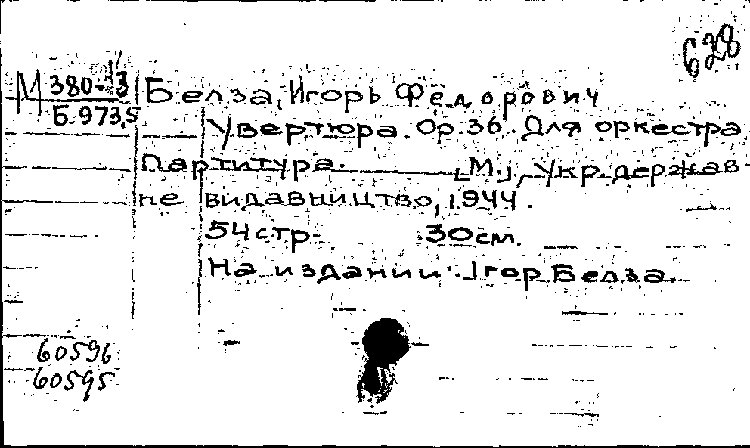 628
М 380-13
Б 973,5
Белза, Игорь Фёдорович
Увертюра. Op.36. Для оркестра
Партитура. [М.], Укр. держав-
не видавництво, 1944.
54 стр. 30 см.
На издании: Iгор Белза.
60596
60595